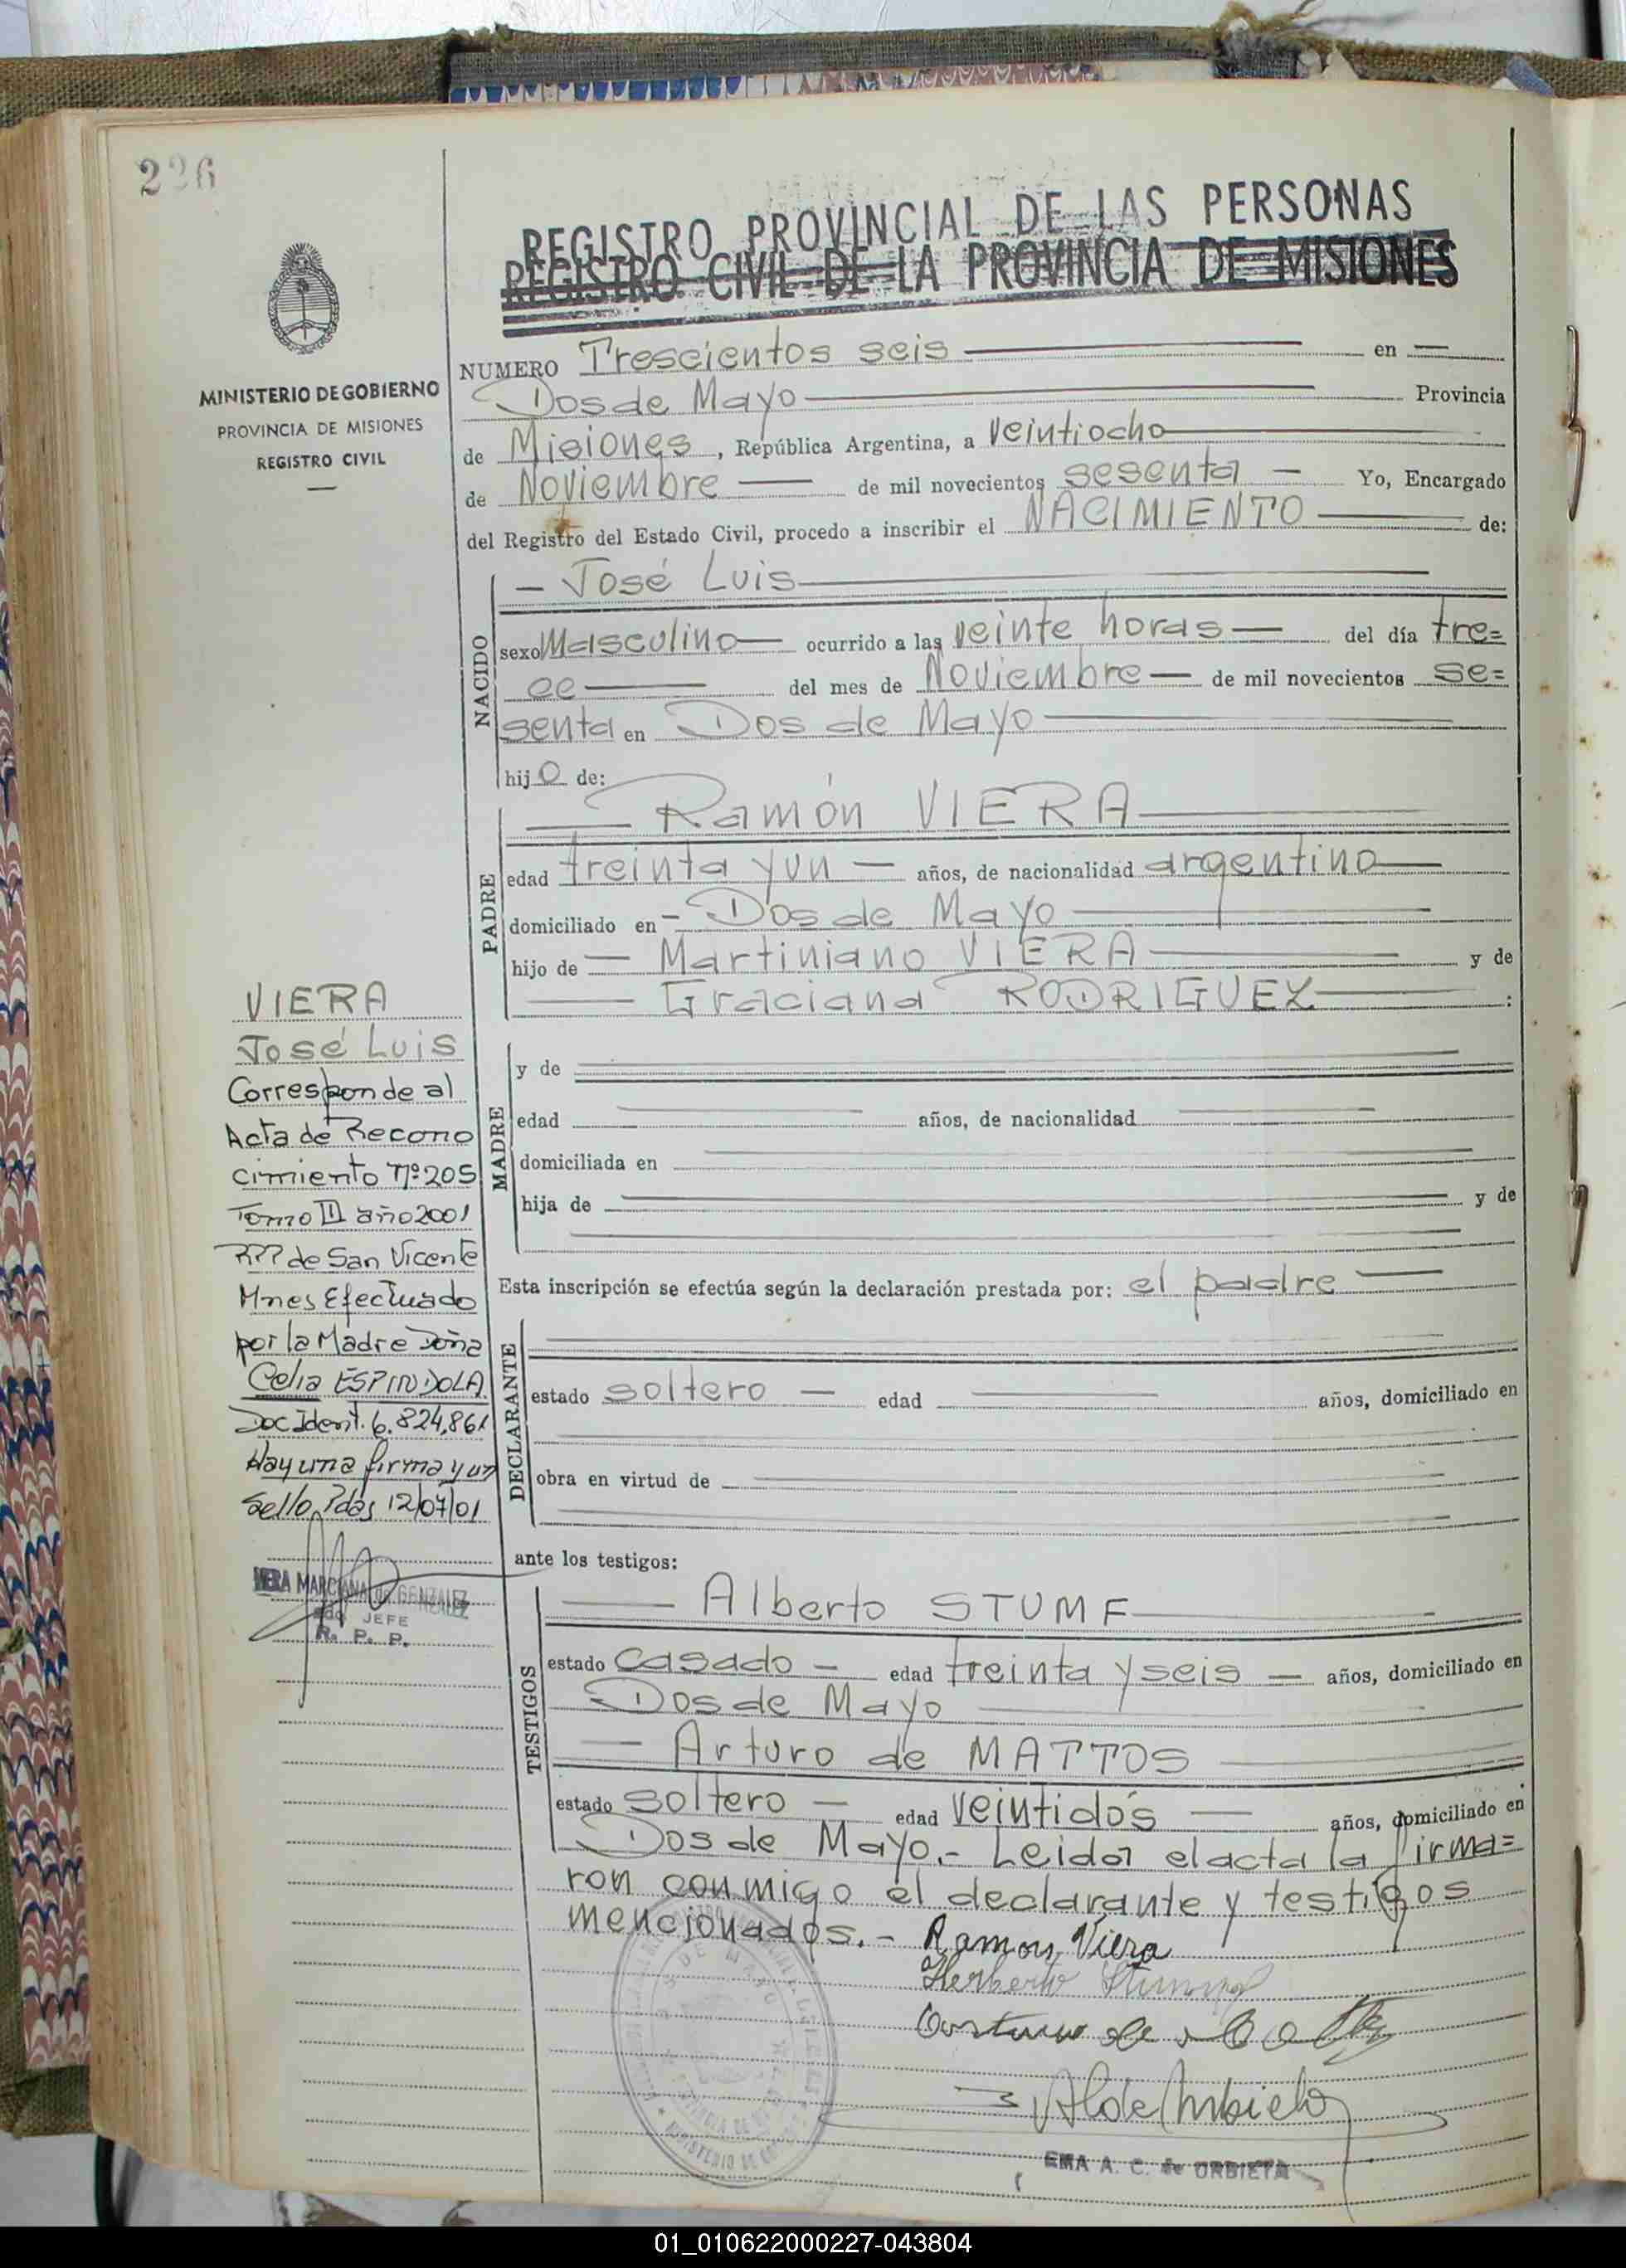 226
REGISTRO PROVINCIAL DE LAS PERSONAS
REGISTRO CIVIL DE LA PROVINCIA DE MISIONES
MINISTERIO DE GOBIERNO
PROVINCIA DE MISIONES
REGISTRO CIVIL
NUMERO Trescientos seis en
Dos de Mayo Provincia
de Misiones, República Argentina, a veintiocho
de Noviembre de mil novecientos sesenta Yo, Encargado
del Registro del Estado Civil, procedo a inscribir el NACIMIENTO de:
NACIDO
José Luis
sexo Masculino ocurrido a las veinte horas del día tre=
ce del mes de Noviembre de mil novecientos se=
senta en Dos de Mayo
hijo de:
PADRE
Ramón VIERA
edad treinta y un años, de nacionalidad argentino
domiciliado en Dos de Mayo
hijo de Martiniano VIERA y de
Graciana RODRIGUEZ :
MADRE
y de
edad años, de nacionalidad
domiciliada en
hija de y de
Esta inscripción se efectúa según la declaración prestada por: el padre
DECLARANTE
estado soltero edad años, domiciliado en
obra en virtud de
ante los testigos:
TESTIGOS
Alberto STUMF
estado casado edad treinta y seis años, domiciliado en
Dos de Mayo
Arturo de MATTOS
estado soltero edad veintidós años, domiciliado en
Dos de Mayo.- Leída el acta la firma=
ron conmigo el declarante y testigos
mencionados.- Ramon Viera
EMA A. C. de ORBIETA
VIERA
José Luis
Corresponde al
Acta de Recono
cimiento nº 205
Tomo II año 2001
RPP de San Vicente
Mnes Efectuado
por la Madre Doña
Celia ESPINDOLA
Doc Ident. 6.824,861
Hay una firma y un
Sello Pdas 12/07/01
MARCIANA de GONZALEZ
JEFE
R. P. P.
01_010622000227-043804